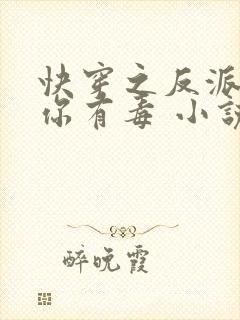 快穿之反派
你有毒 小說
醉晚霞